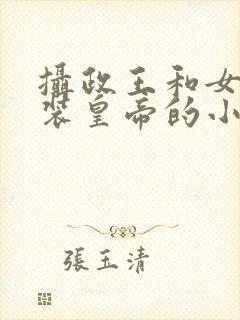 攝政王和女
裝皇帝的小
張玉清